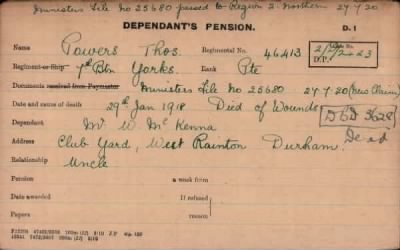 Ministers File No 25680 passed to Region 2. Northern 27.7.20
DEPENDANT'S PENSION.
D.1
Name Powers Thos. Regimental No. 46413
D.P.
Regiment or Ship 7th Btn Yorks. Rank Pte
Documents received from Paymaster Ministers File No 25680 27.7.20 (New Claim)
Date and cause of death 29th Jan 1918 Died of Wounds
Dependant Mr W. McKenna
DGD 3628
Dead
Address Club Yard, West Rainton Durham
Relationship Uncle
Pension a week from
Date awarded If refused
Papers reason